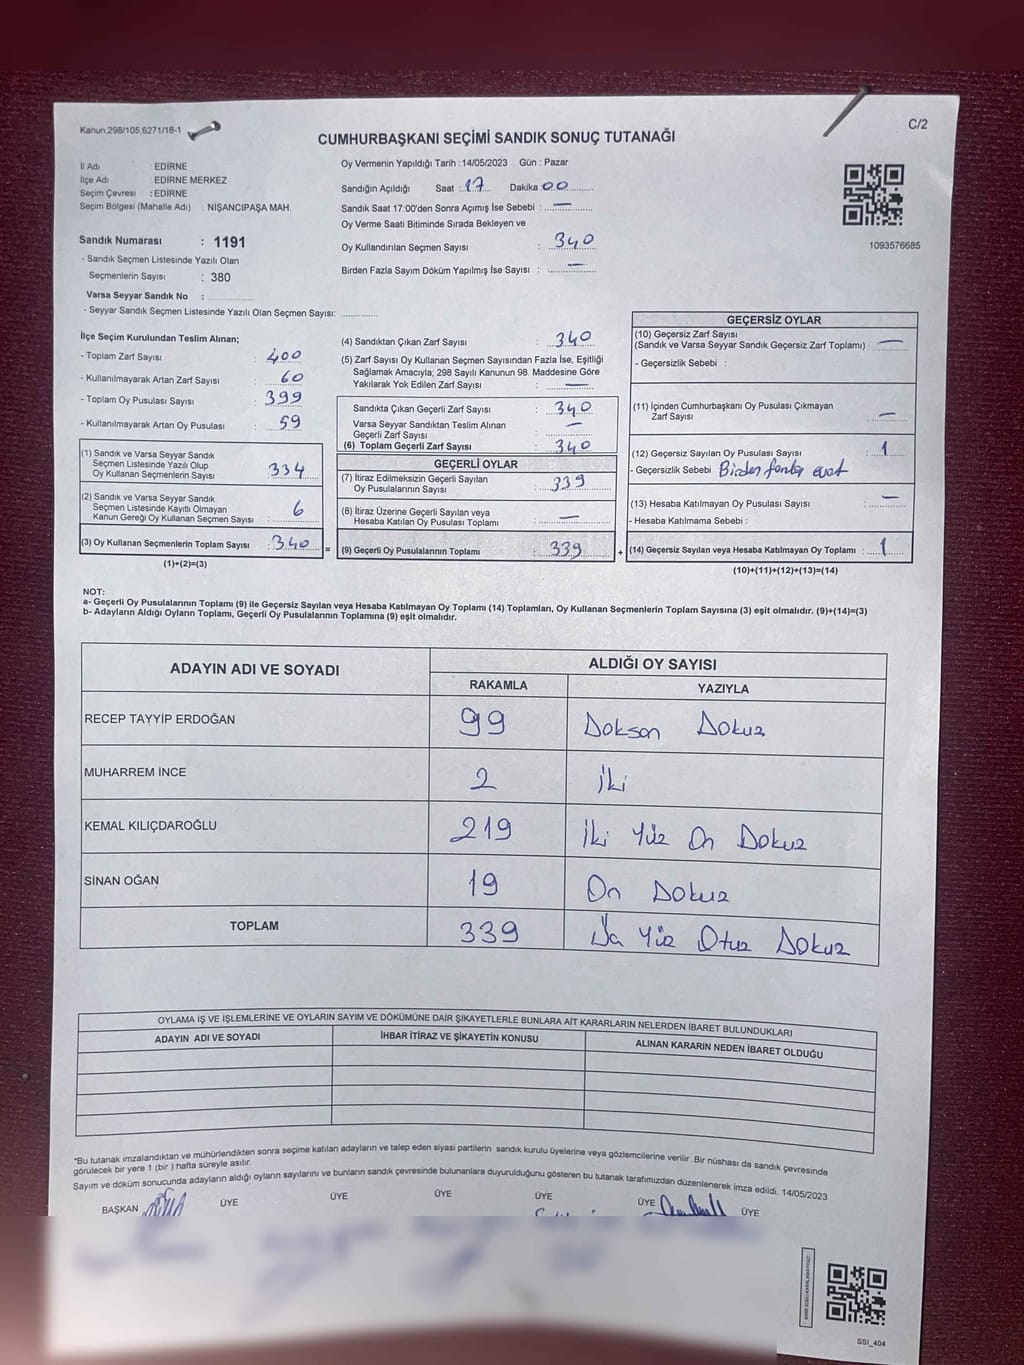 Kanun.298/105,6271/18-1
C/2
CUMHURBAŞKANI SEÇİMİ SANDIK SONUÇ TUTANAĞI
İl Adı EDİRNE
İlçe Adı EDİRNE MERKEZ
Seçim Çevresi : EDİRNE
Seçim Bölgesi (Mahalle Adı) : NİŞANCIPAŞA MAH.
Sandık Numarası : 1191
- Sandık Seçmen Listesinde Yazılı Olan
Seçmenlerin Sayısı : 380
Varsa Seyyar Sandık No :
- Seyyar Sandık Seçmen Listesinde Yazılı Olan Seçmen Sayısı:
Oy Vermenin Yapıldığı Tarih : 14/05/2023 Gün : Pazar
Sandığın Açıldığı Saat : 17 Dakika 00
Sandık Saat 17:00'den Sonra Açımış İse Sebebi : —
Oy Verme Saati Bitiminde Sırada Bekleyen ve
Oy Kullandırılan Seçmen Sayısı : 340
Birden Fazla Sayım Döküm Yapılmış İse Sayısı : —
1093576685
İlçe Seçim Kurulundan Teslim Alınan;
- Toplam Zarf Sayısı : 400
- Kullanılmayarak Artan Zarf Sayısı : 60
- Toplam Oy Pusulası Sayısı : 399
- Kullanılmayarak Artan Oy Pusulası : 59
(1) Sandık ve Varsa Seyyar Sandık
Seçmen Listesinde Yazılı Olup
Oy Kullanan Seçmenlerin Sayısı : 334
(2) Sandık ve Varsa Seyyar Sandık
Seçmen Listesinde Kayıtlı Olmayan
Kanun Gereği Oy Kullanan Seçmen Sayısı : 6
(3) Oy Kullanan Seçmenlerin Toplam Sayısı : 340
(1)+(2)=(3)
(4) Sandıktan Çıkan Zarf Sayısı : 340
(5) Zarf Sayısı Oy Kullanan Seçmen Sayısından Fazla İse, Eşitliği
Sağlamak Amacıyla; 298 Sayılı Kanunun 98. Maddesine Göre
Yakılarak Yok Edilen Zarf Sayısı : —
Sandıkta Çıkan Geçerli Zarf Sayısı : 340
Varsa Seyyar Sandıktan Teslim Alınan
Geçerli Zarf Sayısı : —
(6) Toplam Geçerli Zarf Sayısı : 340
GEÇERLİ OYLAR
(7) İtiraz Edilmeksizin Geçerli Sayılan
Oy Pusulalarının Sayısı : 339
(8) İtiraz Üzerine Geçerli Sayılan veya
Hesaba Katılan Oy Pusulası Toplamı : —
= (9) Geçerli Oy Pusulalarının Toplamı : 339
GEÇERSİZ OYLAR
(10) Geçersiz Zarf Sayısı
(Sandık ve Varsa Seyyar Sandık Geçersiz Zarf Toplamı) : —
- Geçersizlik Sebebi :
(11) İçinden Cumhurbaşkanı Oy Pusulası Çıkmayan
Zarf Sayısı : —
(12) Geçersiz Sayılan Oy Pusulası Sayısı : 1
- Geçersizlik Sebebi Birden fazla evet
(13) Hesaba Katılmayan Oy Pusulası Sayısı : —
- Hesaba Katılmama Sebebi :
+ (14) Geçersiz Sayılan veya Hesaba Katılmayan Oy Toplamı : 1
(10)+(11)+(12)+(13)=(14)
NOT:
a- Geçerli Oy Pusulalarının Toplamı (9) ile Geçersiz Sayılan veya Hesaba Katılmayan Oy Toplamı (14) Toplamları, Oy Kullanan Seçmenlerin Toplam Sayısına (3) eşit olmalıdır. (9)+(14)=(3)
b- Adayların Aldığı Oyların Toplamı, Geçerli Oy Pusulalarının Toplamına (9) eşit olmalıdır.
ADAYIN ADI VE SOYADI
ALDIĞI OY SAYISI
RAKAMLA YAZIYLA
RECEP TAYYİP ERDOĞAN 99 Doksan Dokuz
MUHARREM İNCE 2 İki
KEMAL KILIÇDAROĞLU 219 İki Yüz On Dokuz
SİNAN OĞAN 19 On Dokuz
TOPLAM 339 Üç Yüz Otuz Dokuz
OYLAMA İŞ VE İŞLEMLERİNE VE OYLARIN SAYIM VE DÖKÜMÜNE DAİR ŞİKAYETLERLE BUNLARA AİT KARARLARIN NELERDEN İBARET BULUNDUKLARI
ADAYIN ADI VE SOYADI İHBAR İTİRAZ VE ŞİKAYETİN KONUSU ALINAN KARARIN NEDEN İBARET OLDUĞU
*Bu tutanak imzalandıktan ve mühürlendikten sonra seçime katılan adayların ve talep eden siyasi partilerin sandık kurulu üyelerine veya gözlemcilerine verilir .Bir nüshası da sandık çevresinde
görülecek bir yere 1 (bir ) hafta süreyle asılır.
Sayım ve döküm sonucunda adayların aldığı oyların sayılarını ve bunların sandık çevresinde bulunanlara duyurulduğunu gösteren bu tutanak tarafımızdan düzenlenerek imza edildi. 14/05/2023
BAŞKAN ÜYE ÜYE ÜYE ÜYE ÜYE ÜYE
SSI_404